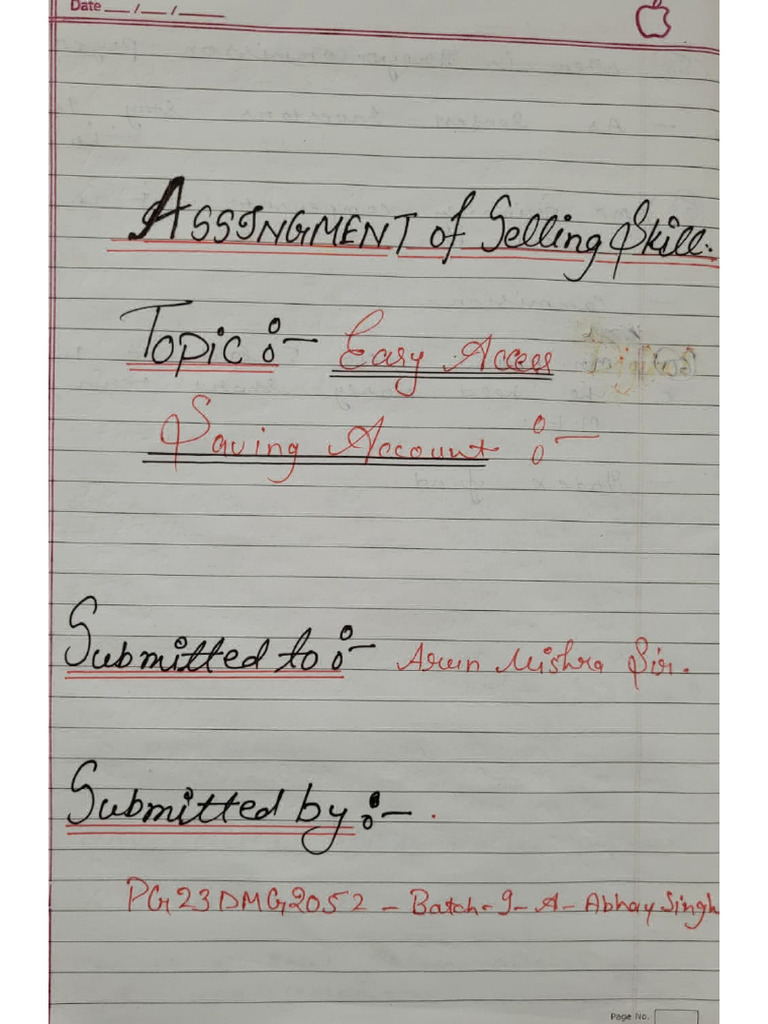 Date __/__/____
ASSINGMENT of Selling Skill.
Topic :- Easy Access
Saving Account :-
Submitted to :- Arun Mishra Sir.
Submitted by :- .
PG23DMG2052 - Batch-9-A- Abhay Singh
Page No.